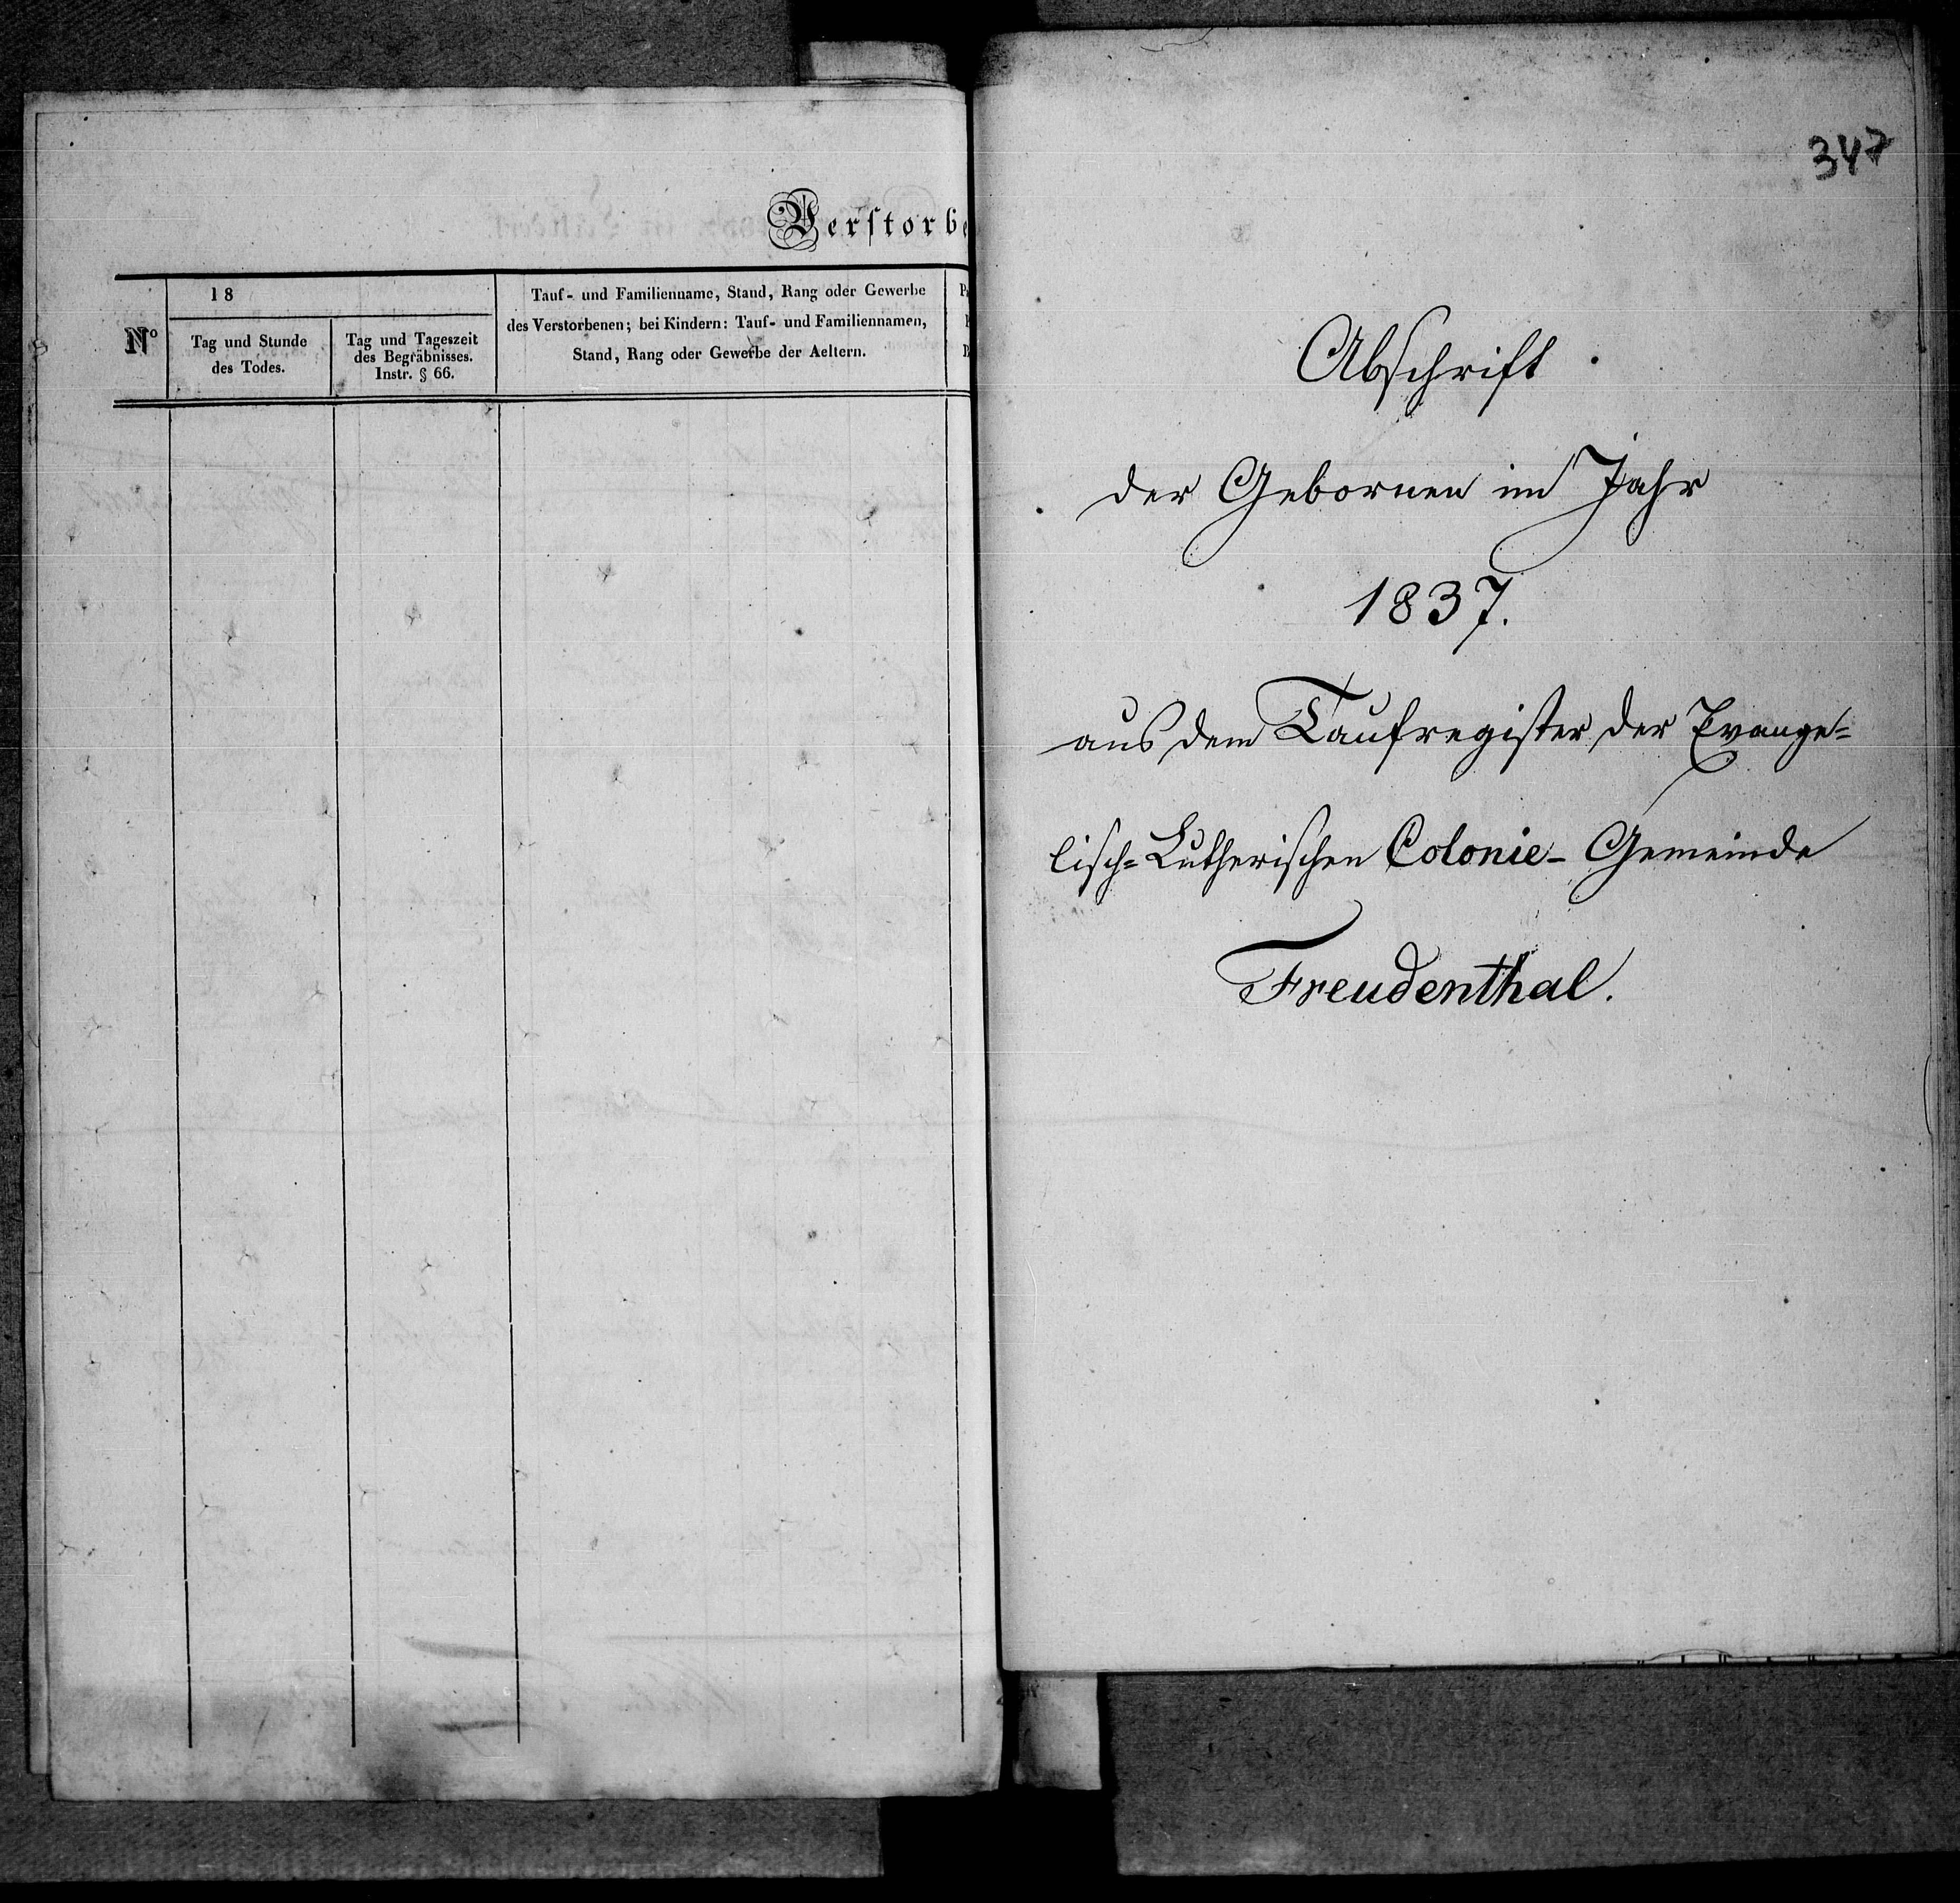 Verstorbe
No
18
Tag und Stunde
des Todes.
Tag und Tageszeit
des Begräbnisses.
Instr. § 66.
Tauf- und Familienname, Stand, Rang oder Gewerbe
des Verstorbenen; bei Kindern: Tauf- und Familiennamen,
Stand, Rang oder Gewerbe der Aeltern.
347
Abschrift
der Gebornen im Jahr
1837.
aus dem Taufregister der Evange=
lisch=Lutherischen Colonie- Gemeinde
Freudenthal.